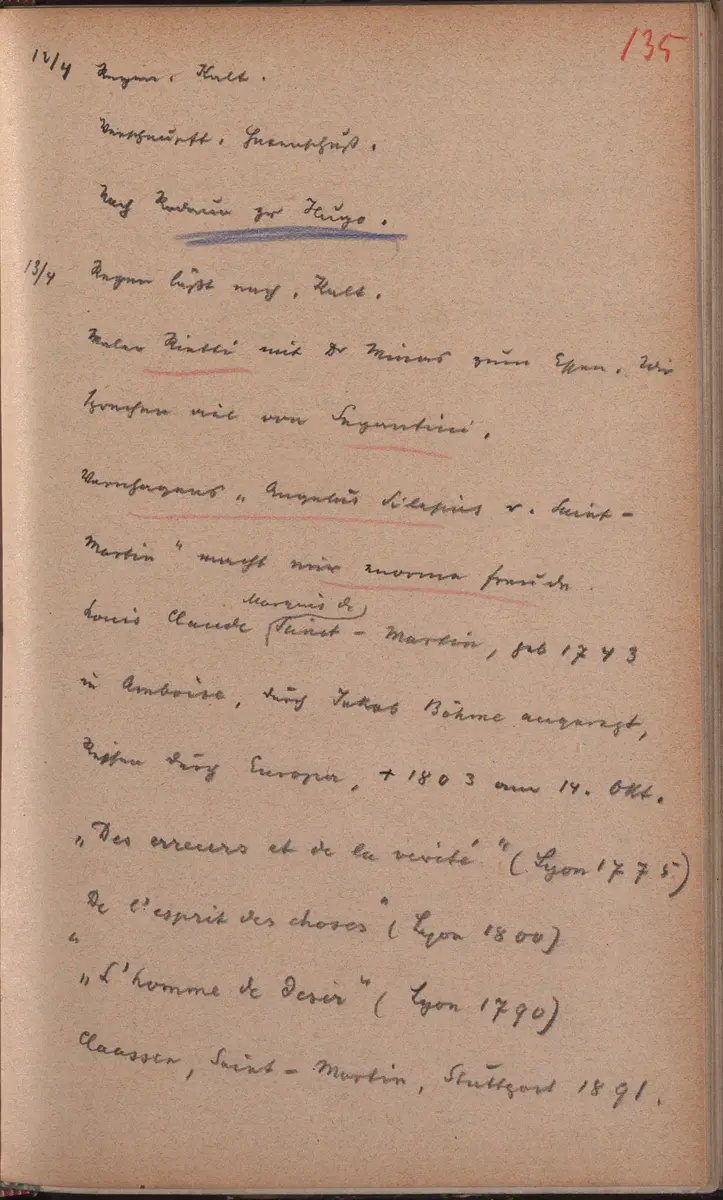 135
12/4 Regen. Kalt.
Verschnupft. Hexenschuß.
Nach Rodaun zu Hugo.
13/4 Regen läßt nach. Kalt.
Maler Rietti mit Dr Minas zum Essen. Wir
sprechen viel von Segantini.
Varnhagens „Angelus Silesius u. Saint-
Martin" macht mir enorme Freude.
Louis Claude Marquis de Saint-Martin, geb 1743
in Amboise, durch Jakob Böhme angeregt,
Reisen durch Europa, + 1803 am 14. Okt.
„Des erreurs et de la verité" (Lyon 1775)
„De l'esprit des choses" (Lyon 1800)
„L'homme de desir" (Lyon 1790)
Claassen, Saint-Martin, Stuttgart 1891.